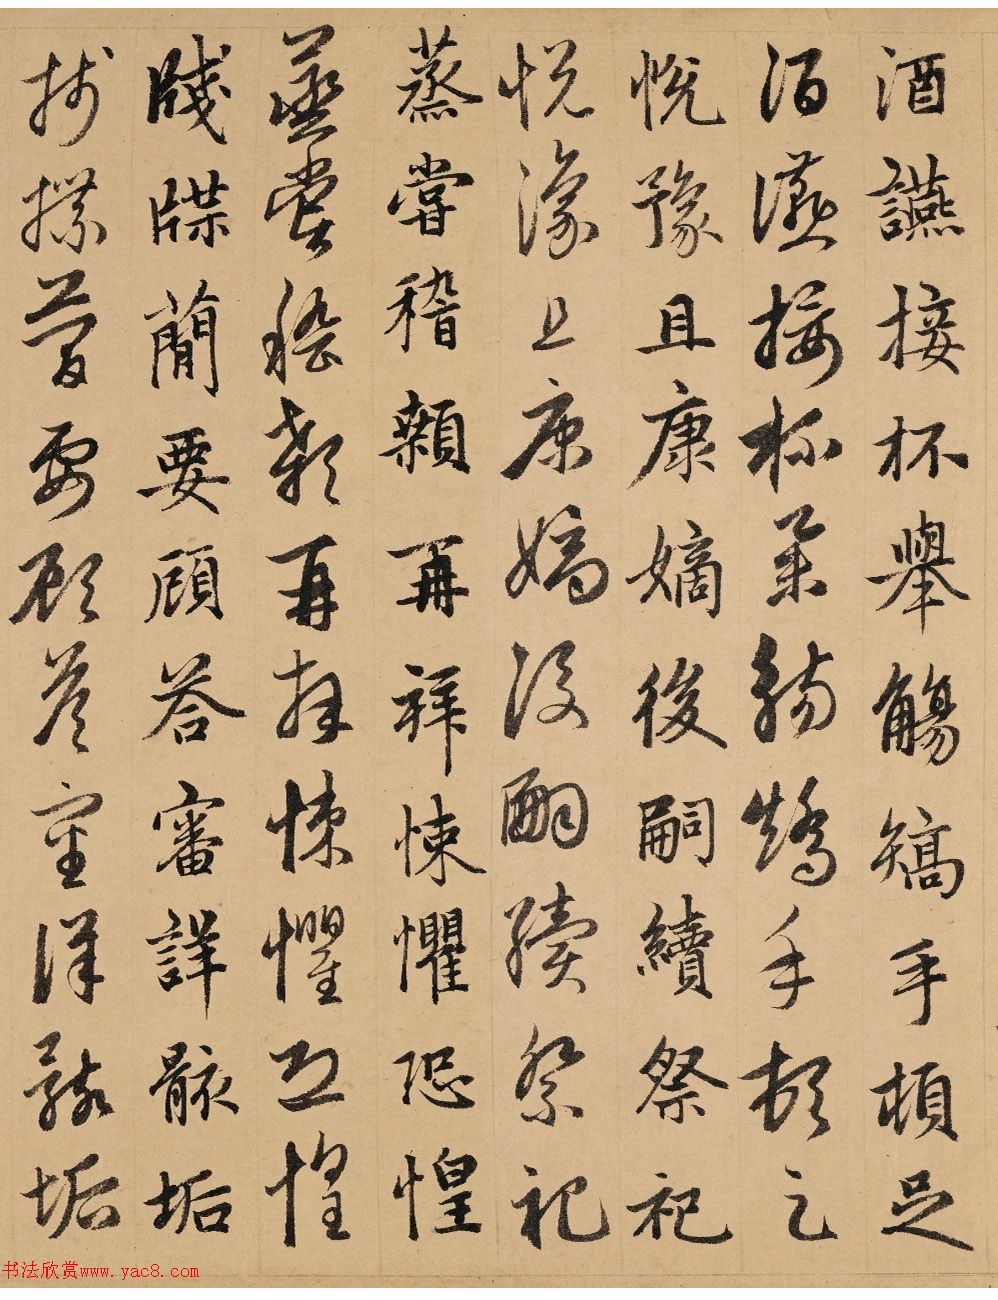 酒讌接杯舉觴矯手頓足
酒讌接杯舉觴矯手頓足
悅豫且康嫡後嗣續祭祀
悅豫且康嫡後嗣續祭祀
蒸嘗稽顙再拜悚懼恐惶
蒸嘗稽顙再拜悚懼恐惶
牋牒簡要顧答審詳骸垢
牋牒簡要顧答審詳骸垢
书法欣赏www.yac8.com